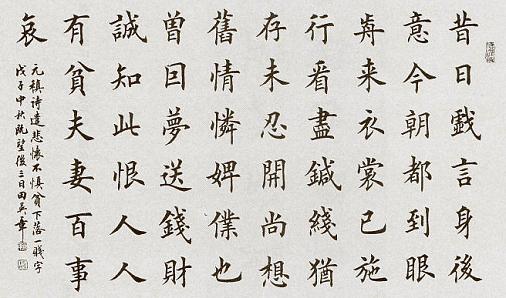 昔日戱言身後
意今朝都到眼
歬来衣裳已施
行看盡鍼綫猶
存未忍開尚想
舊情憐婢僕也
曾回夢送錢財
誠知此恨人人
有貧夫妻百事
哀
元稹詩遣悲懷不慎貧下落一賤字
戊子中秋既望後三日田英章